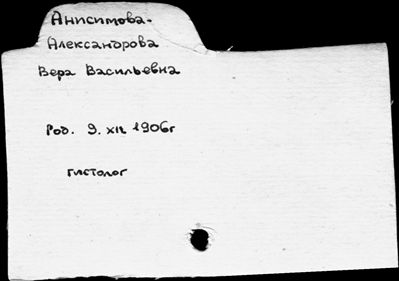 Анисимова-
Александрова
Вера Васильевна
Род. 9. XII 1906г
гистолог